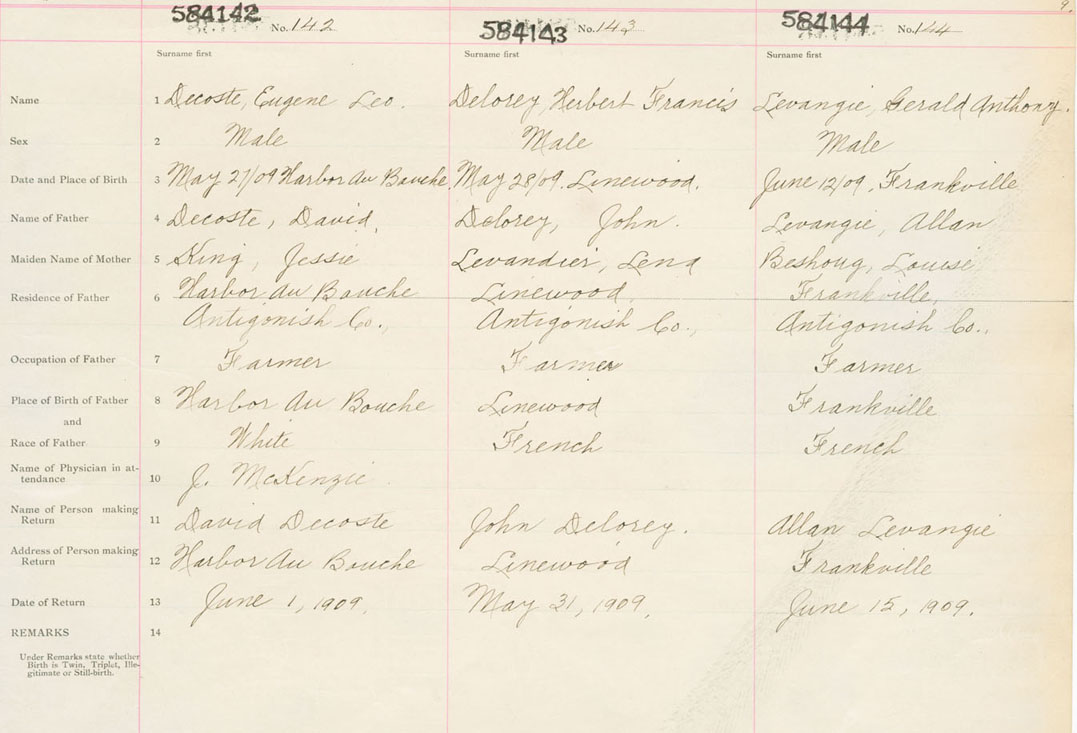 9.
584142 No. 142 584143 No. 143 584144 No. 144
Surname first Surname first Surname first
Name 1 Decoste, Eugene Leo. Delorey, Herbert Francis Levangie, Gerald Anthony.
Sex 2 Male Male Male
Date and Place of Birth 3 May 27/09 Harbor Au Bouche, May 28/09. Linewood. June 12/09. Frankville
Name of Father 4 Decoste, David. Delorey, John. Levangie, Allan
Maiden Name of Mother 5 King, Jessie Levandier, Lena Beshoug, Louise
Residence of Father 6 Harbor Au Bouche Linewood, Frankville,
Antigonish Co., Antigonish Co., Antigonish Co.,
Occupation of Father 7 Farmer Farmer Farmer
Place of Birth of Father 8 Harbor Au Bouche Linewood Frankville
and
Race of Father 9 White French French
Name of Physician in at-
tendance 10 J. McKenzie
Name of Person making
Return 11 David Decoste John Delorey. Allan Levangie
Address of Person making
Return 12 Harbor Au Bouche Linewood Frankville
Date of Return 13 June 1, 1909. May 31, 1909. June 15, 1909.
REMARKS 14
Under Remarks state whether
Birth is Twin, Triplet, Ille-
gitimate or Still-birth.